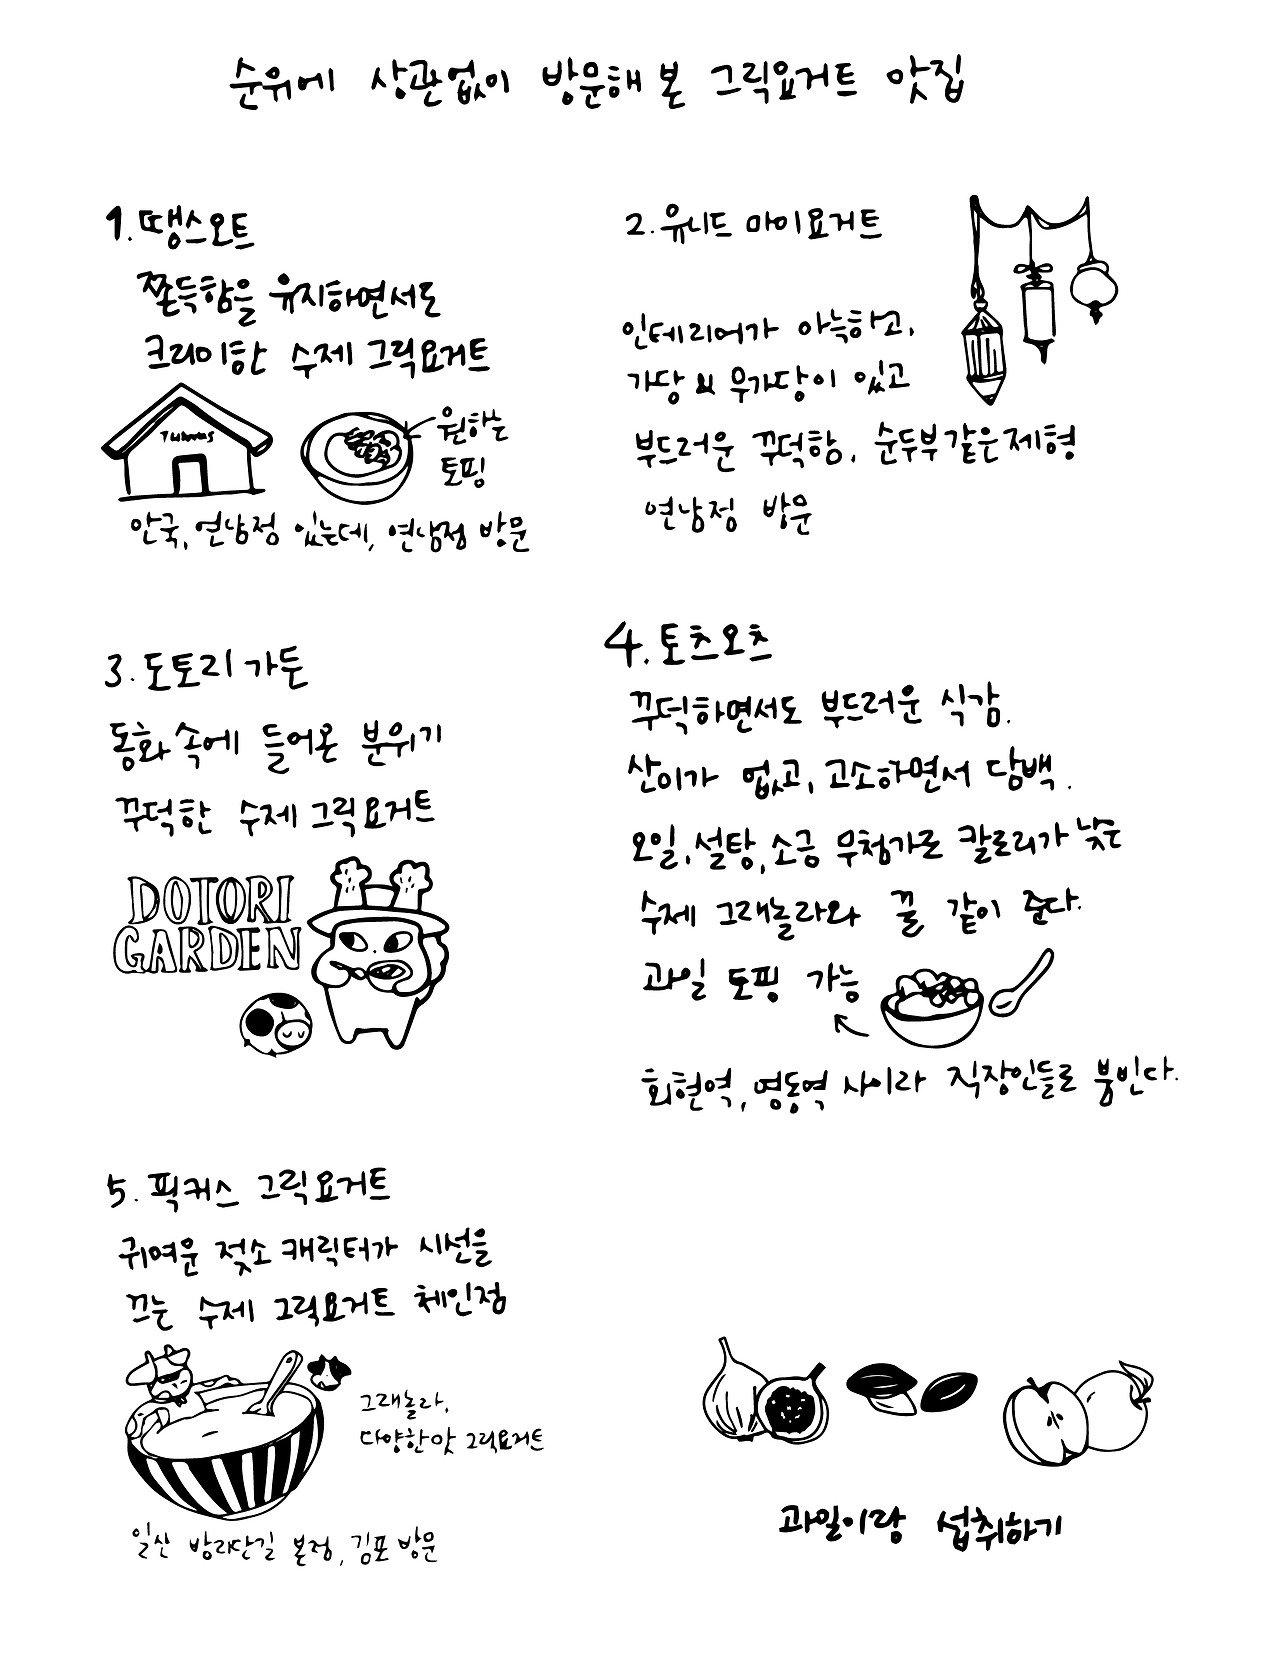 순위에 상관없이 방문해 본 그릭요거트 맛집
1. 땡스오트
쫀득함을 유지하면서도
크리미한 수제 그릭요거트
원하는
토핑
안국, 연남점 있는데, 연남점 방문
2. 유니드 마이요거트
인테리어가 아늑하고,
가당 & 무가당이 있고
부드러운 꾸덕함, 순두부같은 제형
연남점 방문
3. 도토리 가든
동화 속에 들어온 분위기
꾸덕한 수제 그릭요거트
DOTORI
GARDEN
4. 토츠오츠
꾸덕하면서도 부드러운 식감.
산미가 없고, 고소하면서 담백.
오일, 설탕, 소금 무첨가로 칼로리가 낮은
수제 그래놀라와 꿀 같이 준다.
과일 토핑 가능
회현역, 명동역 사이라 직장인들로 붐빈다.
5. 픽커스 그릭요거트
귀여운 젖소 캐릭터가 시선을
끄는 수제 그릭요거트 체인점
그래놀라,
다양한 맛 그릭요거트
일산 밤리단길 본점, 김포 방문
과일이랑 섭취하기